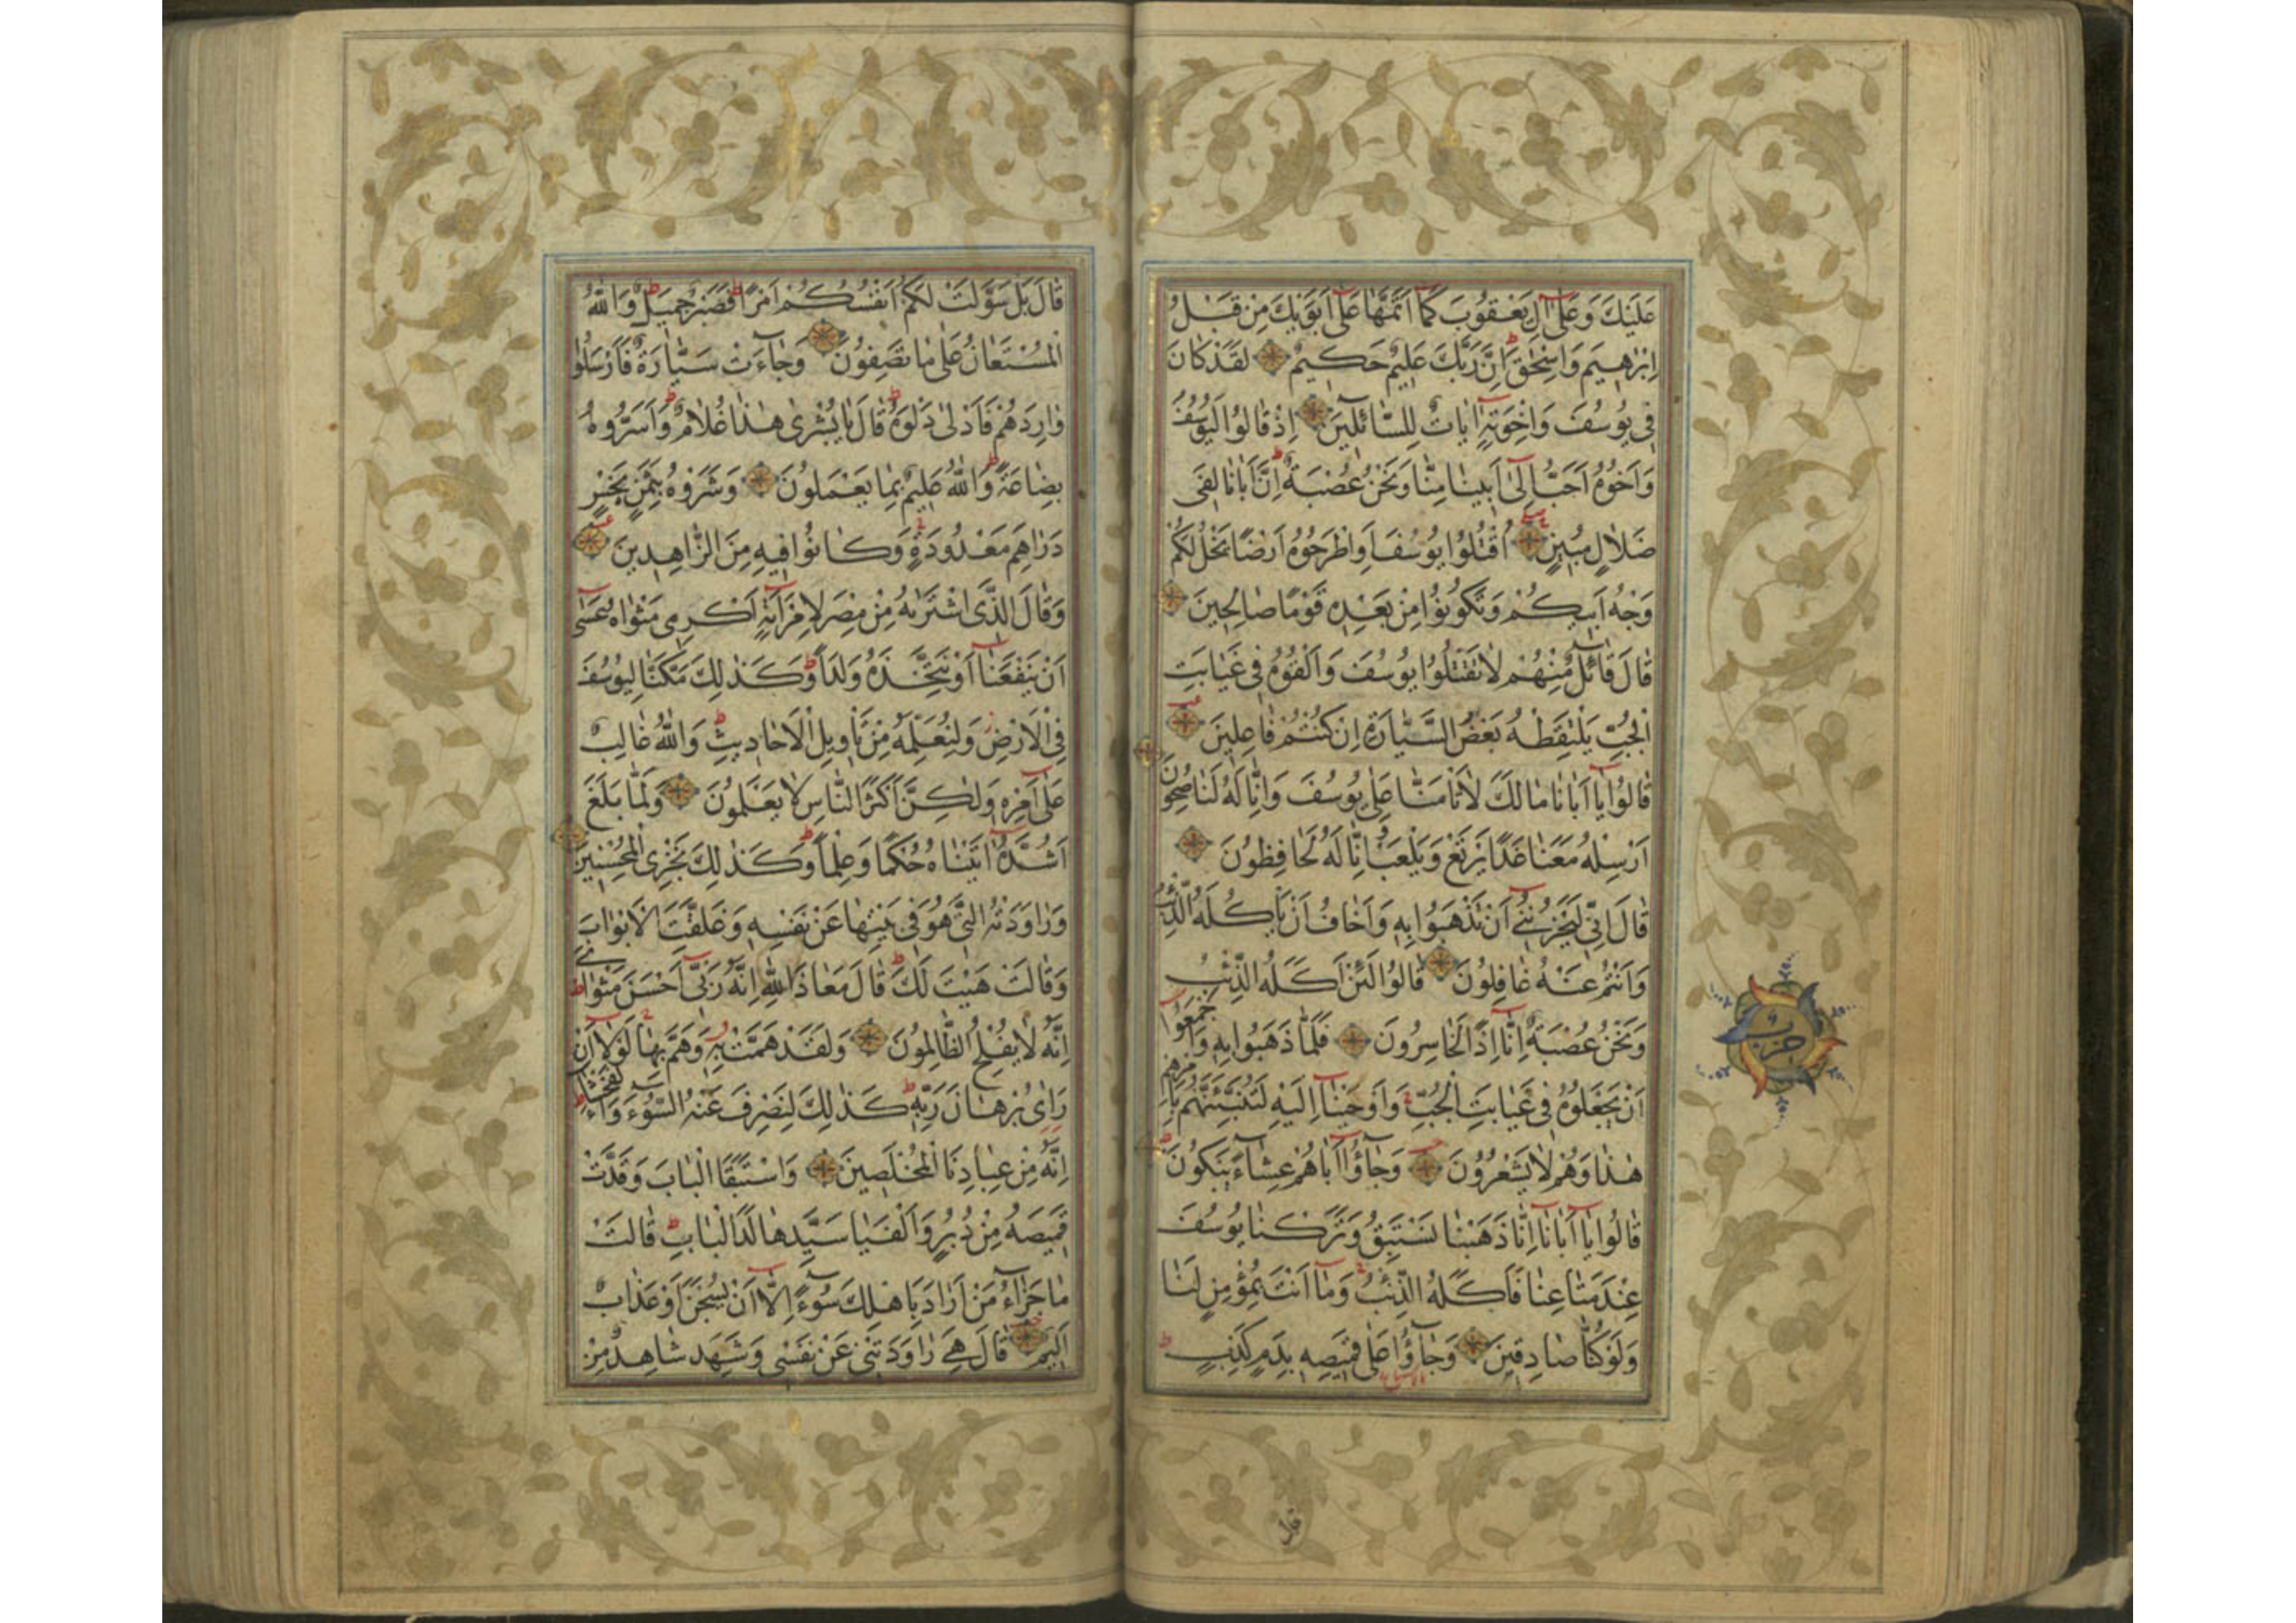 عَلَيْكَ وَعَلٰٓى اٰلِ يَعْقُوبَ كَمَٓا اَتَمَّهَا عَلٰٓى اَبَوَيْكَ مِنْ قَبْلُ
اِبْرٰهِيمَ وَاِسْحٰقَ ط اِنَّ رَبَّكَ عَلِيمٌ حَكِيمٌ لَقَدْ كَانَ
فِى يُوسُفَ وَاِخْوَتِهٖٓ اٰيَاتٌ لِلسَّٓائِلِينَ اِذْ قَالُوا لَيُوسُفُ
وَاَخُوهُ اَحَبُّ اِلٰٓى اَبِينَا مِنَّا وَنَحْنُ عُصْبَةٌ ط اِنَّ اَبَانَا لَفِى
ضَلَالٍ مُبِينٍ اُقْتُلُوا يُوسُفَ اَوِ اطْرَحُوهُ اَرْضًا يَخْلُ لَكُمْ
وَجْهُ اَبِيكُمْ وَتَكُونُوا مِنْ بَعْدِهٖ قَوْمًا صَالِحِينَ
قَالَ قَٓائِلٌ مِنْهُمْ لَا تَقْتُلُوا يُوسُفَ وَاَلْقُوهُ فِى غَيَابَتِ
الْجُبِّ يَلْتَقِطْهُ بَعْضُ السَّيَّارَةِ اِنْ كُنْتُمْ فَاعِلِينَ
قَالُوا يَٓا اَبَانَا مَا لَكَ لَا تَاْمَنَّا عَلٰى يُوسُفَ وَاِنَّا لَهُ لَنَاصِحُونَ
اَرْسِلْهُ مَعَنَا غَدًا يَرْتَعْ وَيَلْعَبْ وَاِنَّا لَهُ لَحَافِظُونَ
قَالَ اِنِّى لَيَحْزُنُنِٓى اَنْ تَذْهَبُوا بِهٖ وَاَخَافُ اَنْ يَاْكُلَهُ الذِّئْبُ
وَاَنْتُمْ عَنْهُ غَافِلُونَ قَالُوا لَئِنْ اَكَلَهُ الذِّئْبُ
وَنَحْنُ عُصْبَةٌ اِنَّٓا اِذًا لَخَاسِرُونَ فَلَمَّا ذَهَبُوا بِهٖ وَاَجْمَعُٓوا
اَنْ يَجْعَلُوهُ فِى غَيَابَتِ الْجُبِّ وَاَوْحَيْنَٓا اِلَيْهِ لَتُنَبِّئَنَّهُمْ بِاَمْرِهِمْ
هٰذَا وَهُمْ لَا يَشْعُرُونَ وَجَٓاؤُٓا اَبَاهُمْ عِشَٓاءً يَبْكُونَ
قَالُوا يَٓا اَبَانَٓا اِنَّا ذَهَبْنَا نَسْتَبِقُ وَتَرَكْنَا يُوسُفَ
عِنْدَ مَتَاعِنَا فَاَكَلَهُ الذِّئْبُ وَمَٓا اَنْتَ بِمُؤْمِنٍ لَنَا
وَلَوْ كُنَّا صَادِقِينَ وَجَٓاؤُا عَلٰى قَمِيصِهٖ بِدَمٍ كَذِبٍ ط
قال
حزب
قَالَ بَلْ سَوَّلَتْ لَكُمْ اَنْفُسُكُمْ اَمْرًا ط فَصَبْرٌ جَمِيلٌ ط وَاللّٰهُ
الْمُسْتَعَانُ عَلٰى مَا تَصِفُونَ وَجَٓاءَتْ سَيَّارَةٌ فَاَرْسَلُوا
وَارِدَهُمْ فَاَدْلٰى دَلْوَهُ ط قَالَ يَا بُشْرٰى هٰذَا غُلَامٌ ط وَاَسَرُّوهُ
بِضَاعَةً ط وَاللّٰهُ عَلِيمٌ بِمَا يَعْمَلُونَ وَشَرَوْهُ بِثَمَنٍ بَخْسٍ
دَرَاهِمَ مَعْدُودَةٍ وَكَانُوا فِيهِ مِنَ الزَّاهِدِينَ
وَقَالَ الَّذِى اشْتَرٰيهُ مِنْ مِصْرَ لِامْرَاَتِهٖٓ اَكْرِمِى مَثْوٰاهُ عَسٰٓى
اَنْ يَنْفَعَنَٓا اَوْ نَتَّخِذَهُ وَلَدًا ط وَكَذٰلِكَ مَكَّنَّا لِيُوسُفَ
فِى الْاَرْضِ وَلِنُعَلِّمَهُ مِنْ تَاْوِيلِ الْاَحَادِيثِ ط وَاللّٰهُ غَالِبٌ
عَلٰٓى اَمْرِهٖ وَلٰكِنَّ اَكْثَرَ النَّاسِ لَا يَعْلَمُونَ وَلَمَّا بَلَغَ
اَشُدَّهُٓ اٰتَيْنَاهُ حُكْمًا وَعِلْمًا ط وَكَذٰلِكَ نَجْزِى الْمُحْسِنِينَ
وَرَاوَدَتْهُ الَّتِى هُوَ فِى بَيْتِهَا عَنْ نَفْسِهٖ وَغَلَّقَتِ الْاَبْوَابَ
وَقَالَتْ هَيْتَ لَكَ ط قَالَ مَعَاذَ اللّٰهِ اِنَّهُ رَبِّٓى اَحْسَنَ مَثْوَاىَ ط
اِنَّهُ لَا يُفْلِحُ الظَّالِمُونَ وَلَقَدْ هَمَّتْ بِهٖ وَهَمَّ بِهَا لَوْلَٓا اَنْ
رَاٰى بُرْهَانَ رَبِّهٖ ط كَذٰلِكَ لِنَصْرِفَ عَنْهُ السُّٓوءَ وَالْفَحْشَٓاءَ ط
اِنَّهُ مِنْ عِبَادِنَا الْمُخْلَصِينَ وَاسْتَبَقَا الْبَابَ وَقَدَّتْ
قَمِيصَهُ مِنْ دُبُرٍ وَاَلْفَيَا سَيِّدَهَا لَدَا الْبَابِ ط قَالَتْ
مَا جَزَٓاءُ مَنْ اَرَادَ بِاَهْلِكَ سُٓوءًا اِلَّٓا اَنْ يُسْجَنَ اَوْ عَذَابٌ
اَلِيمٌ قَالَ هِىَ رَاوَدَتْنِى عَنْ نَفْسِى وَشَهِدَ شَاهِدٌ مِنْ